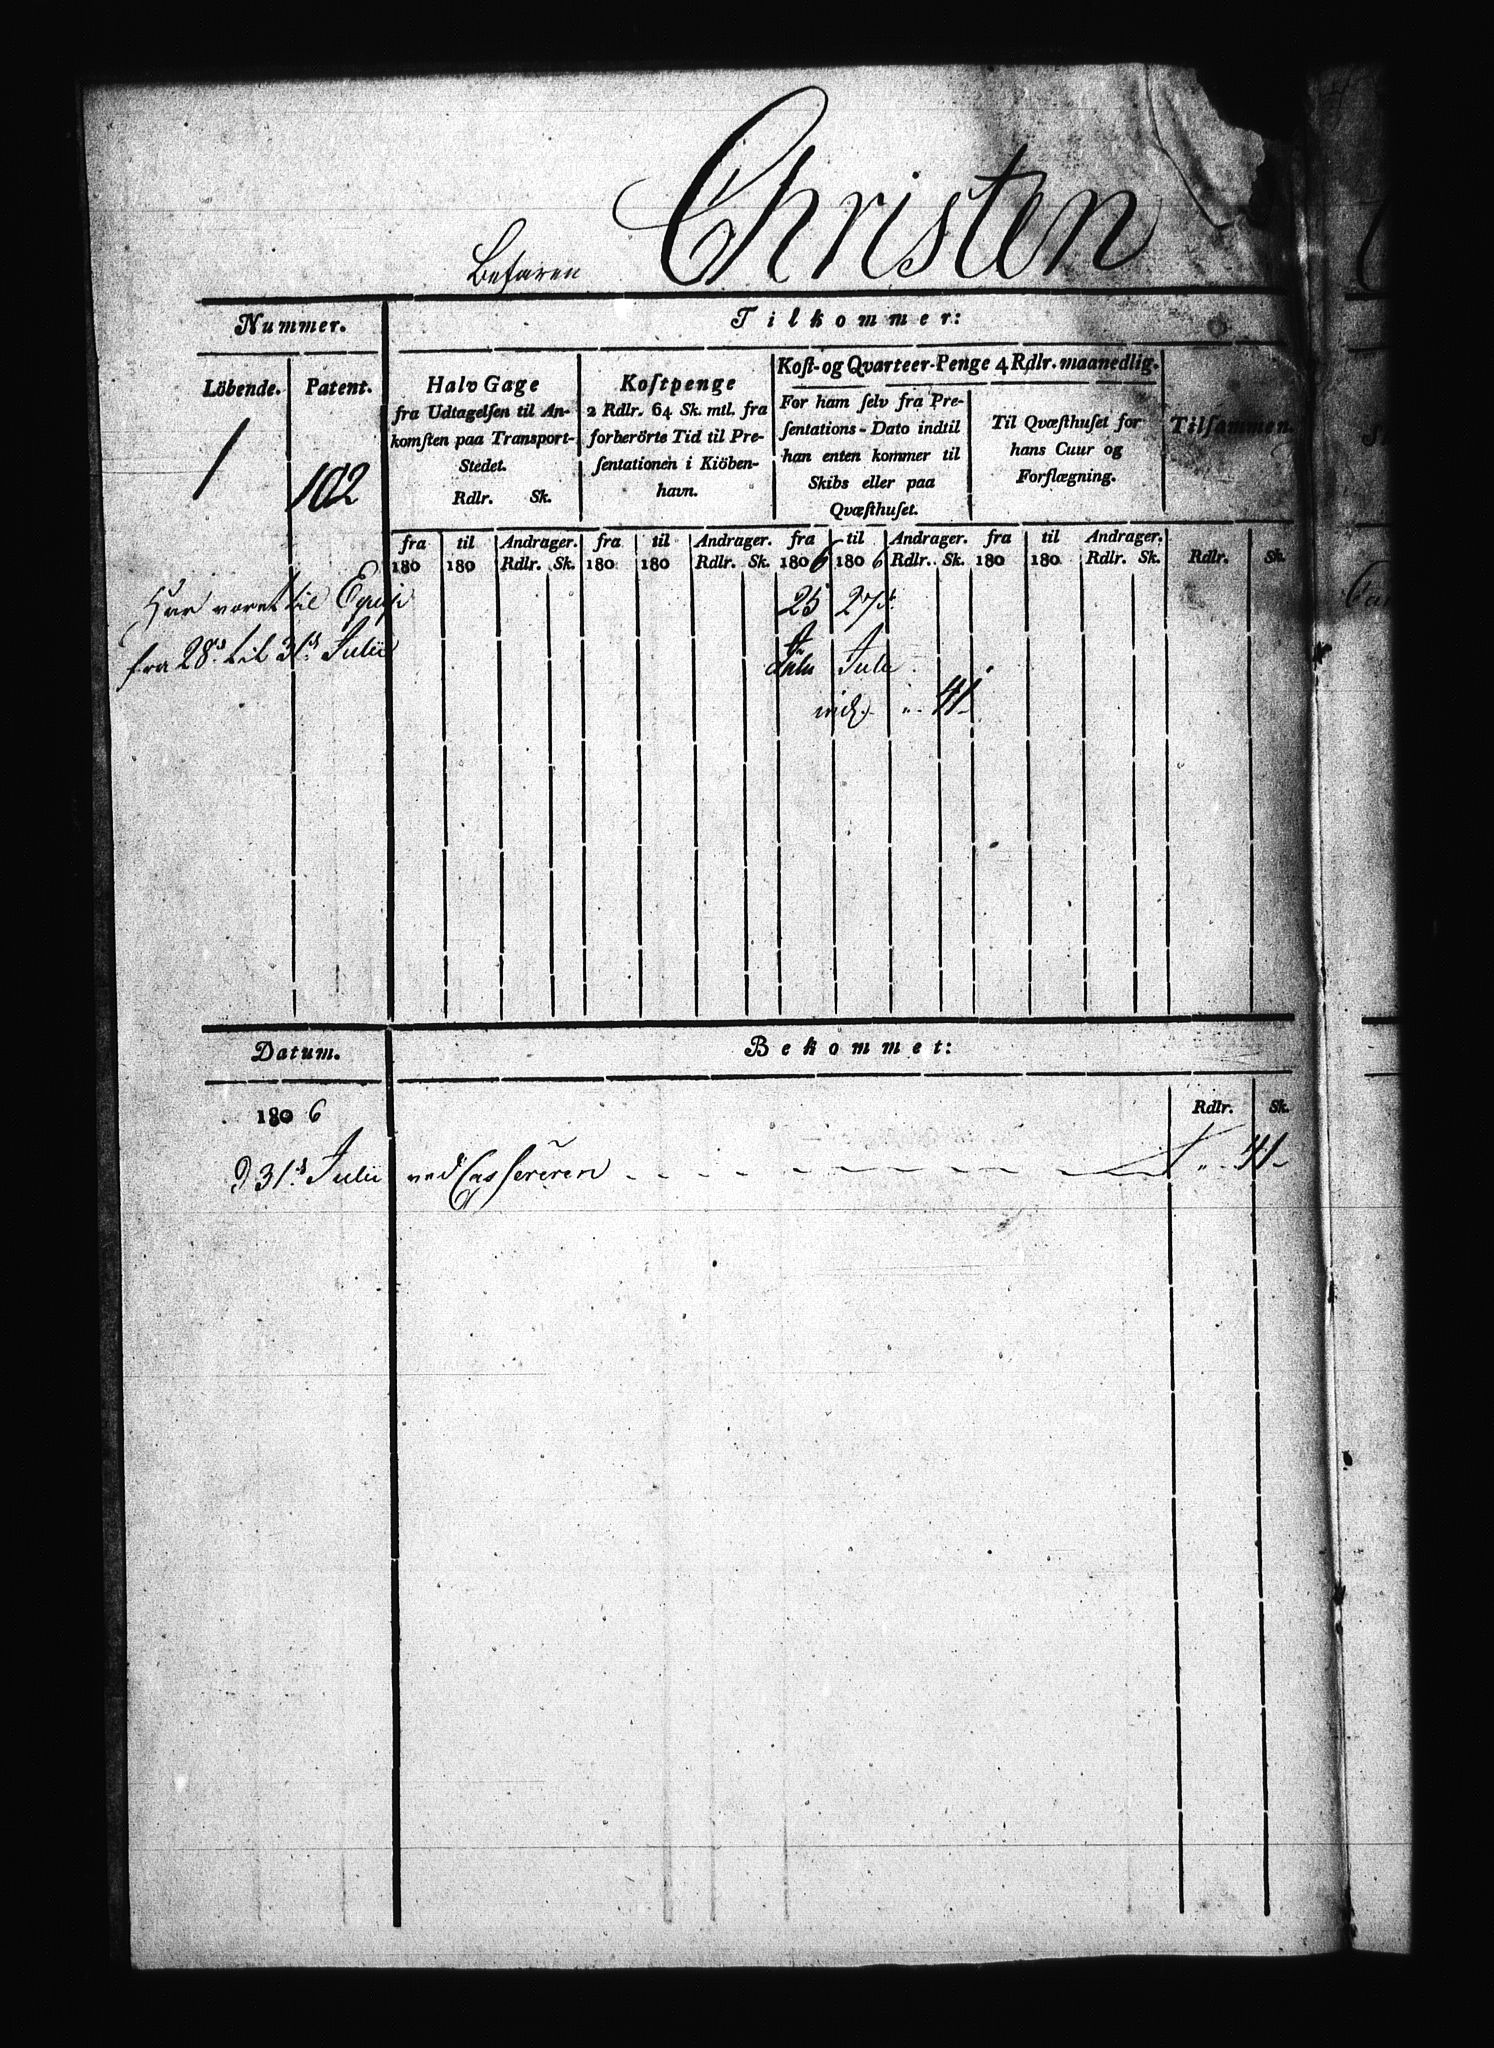 Befaren Christen
Nummer.
Tilkommer:
Löbende.
Patent.
Halv Gage
fra Udtagelsen til An-
komsten paa Transport-
Stedet.
Rdlr. Sk.
Kostpenge
2 Rdlr. 64 Sk. mtl. fra
forberörte Tid til Pre-
sentationen i Kiöben-
havn.
Kost- og Qvarteer-Penge 4 Rdlr. maanedlig.
For ham selv fra Pre-
sentations-Dato indtil
han enten kommer til
Skibs eller paa
Qvæsthuset.
Til Qvæsthuset for
hans Cuur og
Forflægning.
Tilsammen.
1
102
fra til Andrager. fra til Andrager. fra til Andrager. fra til Andrager.
180 180 Rdlr. Sk. 180 180 Rdlr. Sk. 1806 1806 Rdlr. Sk. 180 180 Rdlr. Sk. Rdlr. Sk.
Har været til Equip
fra 28de til 31te Julii
25 27de
Julii
incl. " 41
Datum.
Bekommet:
1806
Rdlr. Sk.
d 31te Julii ved Cassereren " 41